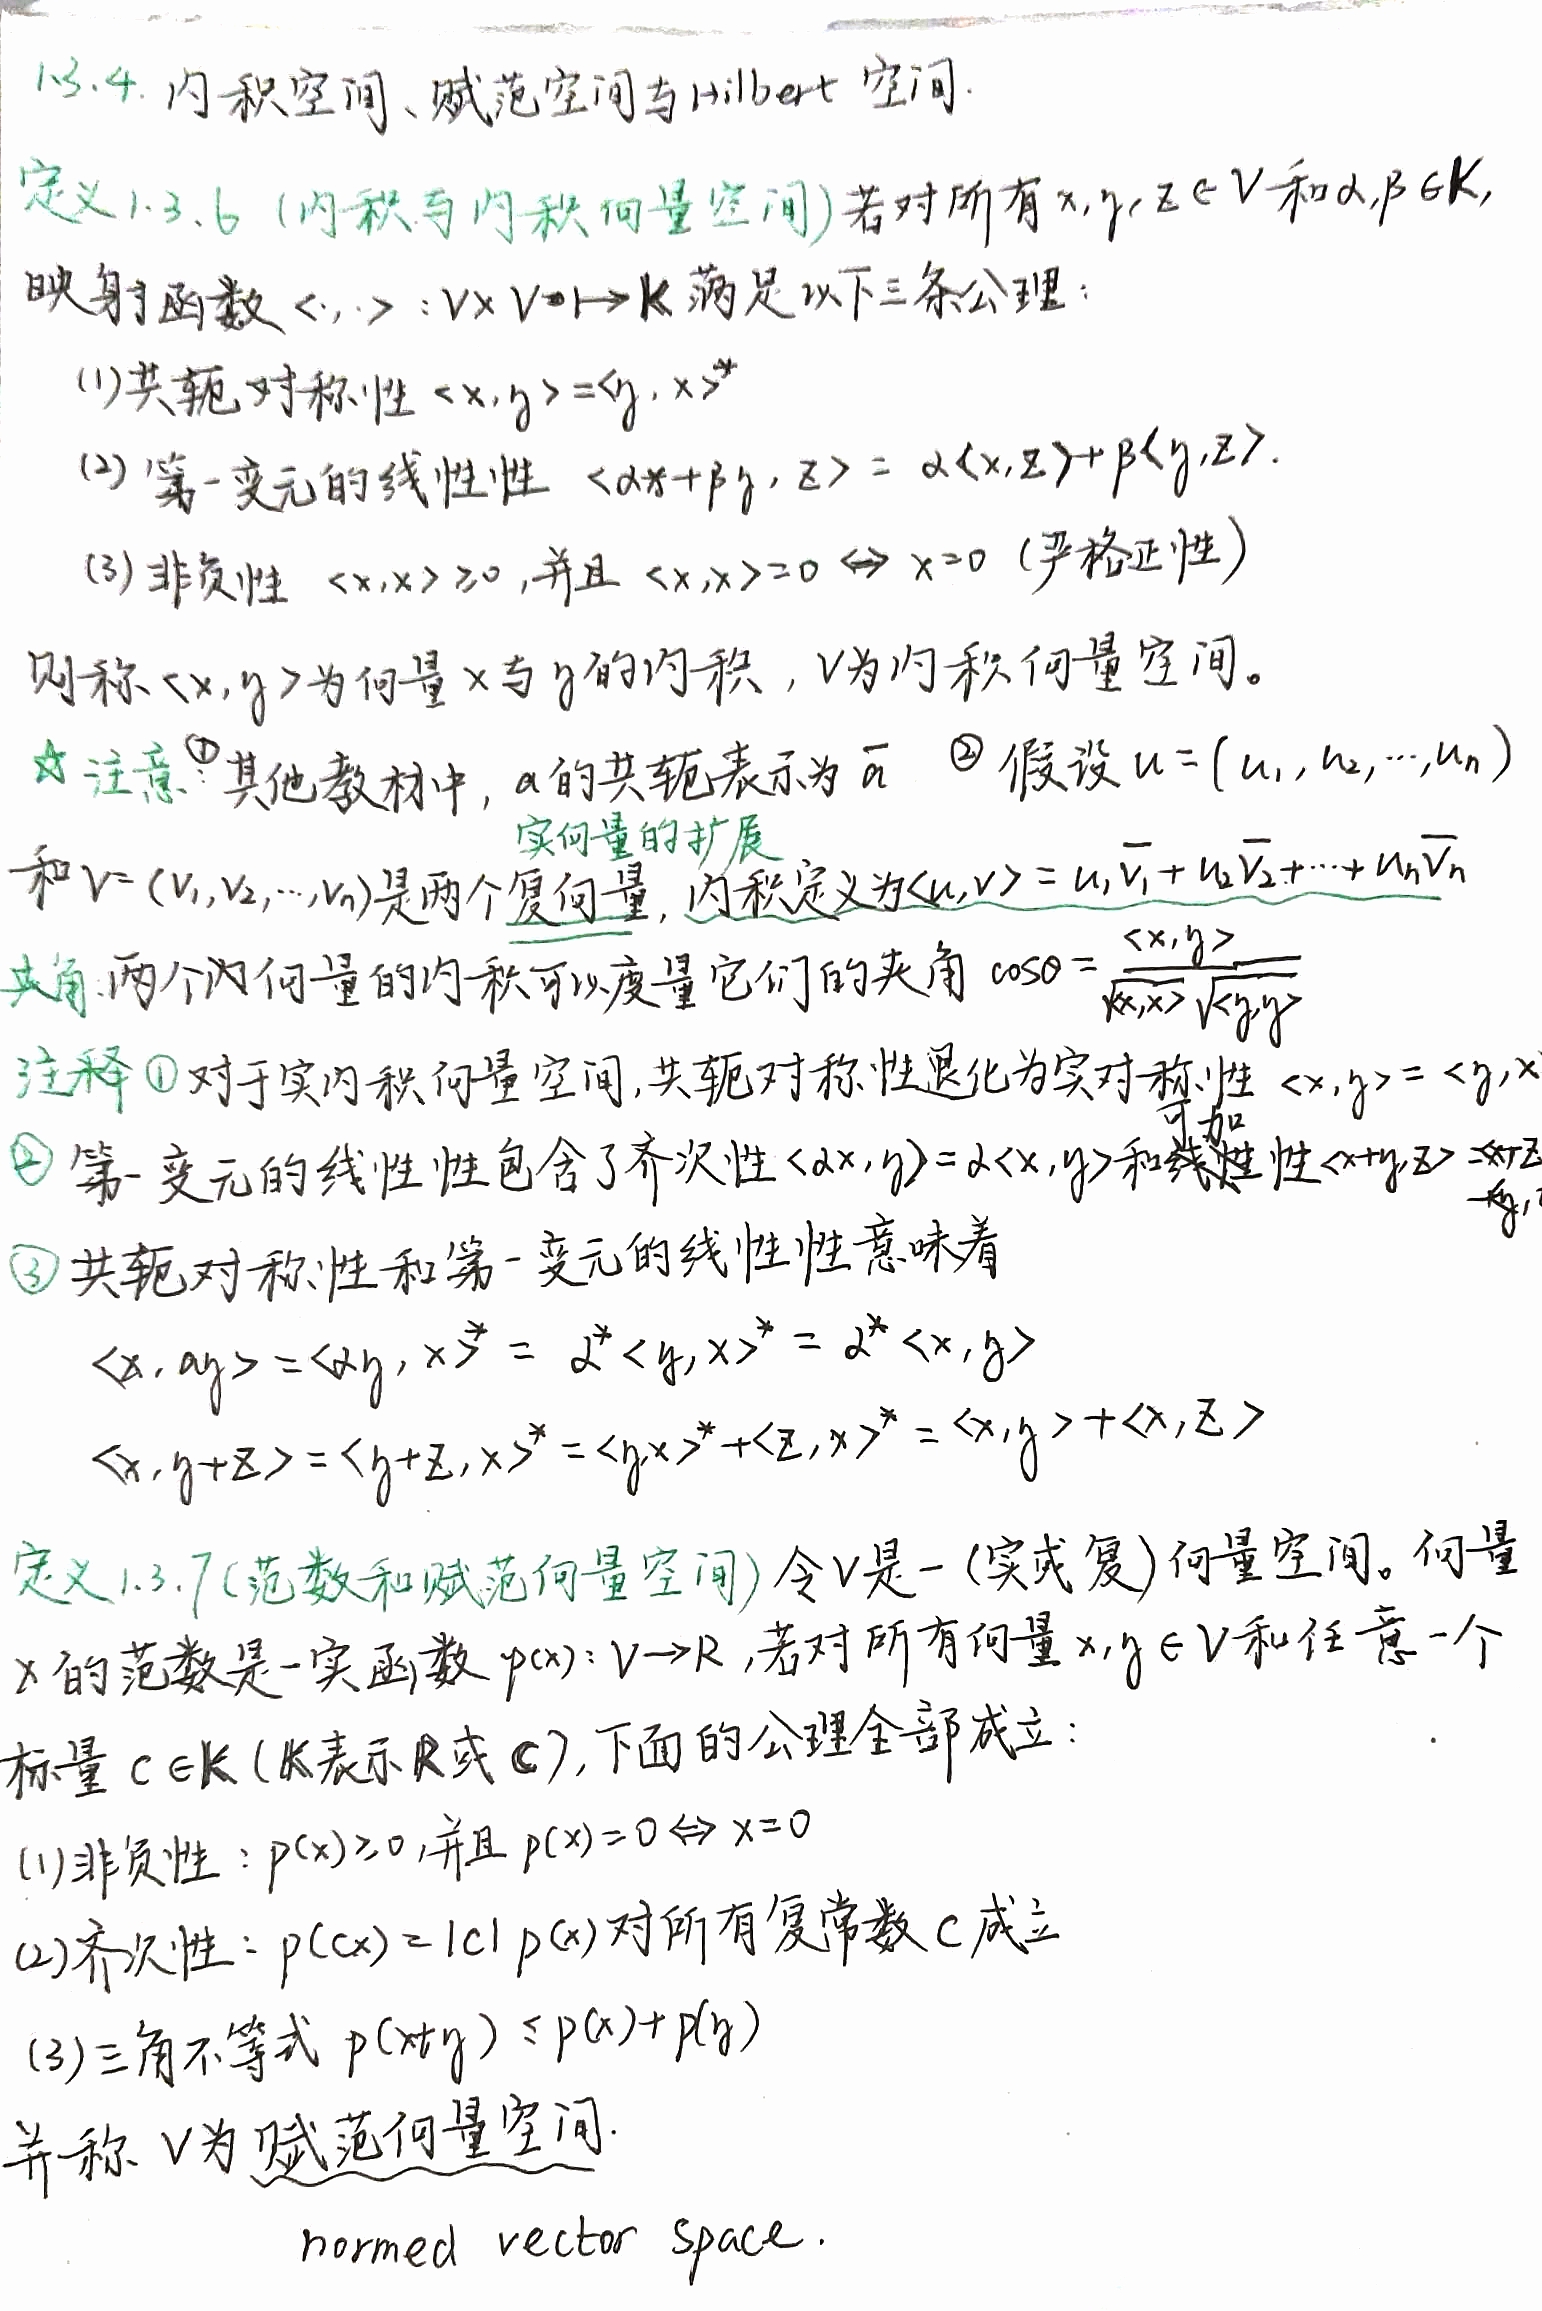 1.3.4. 内积空间、赋范空间与Hilbert 空间.
定义1.3.6 (内积与内积向量空间) 若对所有 x, y, z ∈ V 和 α, β ∈ K,
映射函数 <·,·> : V × V ↦ K 满足以下三条公理：
(1) 共轭对称性 <x, y> = <y, x>*
(2) 第一变元的线性性 <αx + βy, z> = α<x, z> + β<y, z>.
(3) 非负性 <x, x> ≥ 0, 并且 <x, x> = 0 ⇔ x = 0 (严格正性)
则称 <x, y> 为向量 x 与 y 的内积, V为内积向量空间。
☆ 注意: ① 其他教材中, a的共轭表示为 a̅ ② 假设 u = (u₁, u₂, ⋯, uₙ)
实向量的扩展
和 v = (v₁, v₂, ⋯, vₙ) 是两个复向量, 内积定义为<u, v> = u₁v̅₁ + u₂v̅₂ + ⋯ + uₙv̅ₙ
夹角: 两个向量的内积可以度量它们的夹角 cosθ = <x, y> / (√<x, x> √<y, y>)
注释 ① 对于实内积向量空间, 共轭对称性退化为实对称性 <x, y> = <y, x
② 第一变元的线性性包含了齐次性 <αx, y> = α<x, y> 和可加性 <x+y, z> = <x, z
+<y,
③ 共轭对称性和第一变元的线性性意味着
<x, αy> = <αy, x>* = α* <y, x>* = α* <x, y>
<x, y+z> = <y+z, x>* = <y, x>* + <z, x>* = <x, y> + <x, z>
定义1.3.7 (范数和赋范向量空间) 令V是一 (实或复) 向量空间。向量
x 的范数是一实函数 p(x): V → R, 若对所有向量 x, y ∈ V 和任意一个
标量 c ∈ K (K表示 R或 C), 下面的公理全部成立：
(1) 非负性：p(x) ≥ 0, 并且 p(x) = 0 ⇔ x = 0
(2) 齐次性：p(cx) = |c| p(x) 对所有复常数 c 成立
(3) 三角不等式 p(x+y) ≤ p(x) + p(y)
并称 V 为赋范向量空间.
normed vector space.